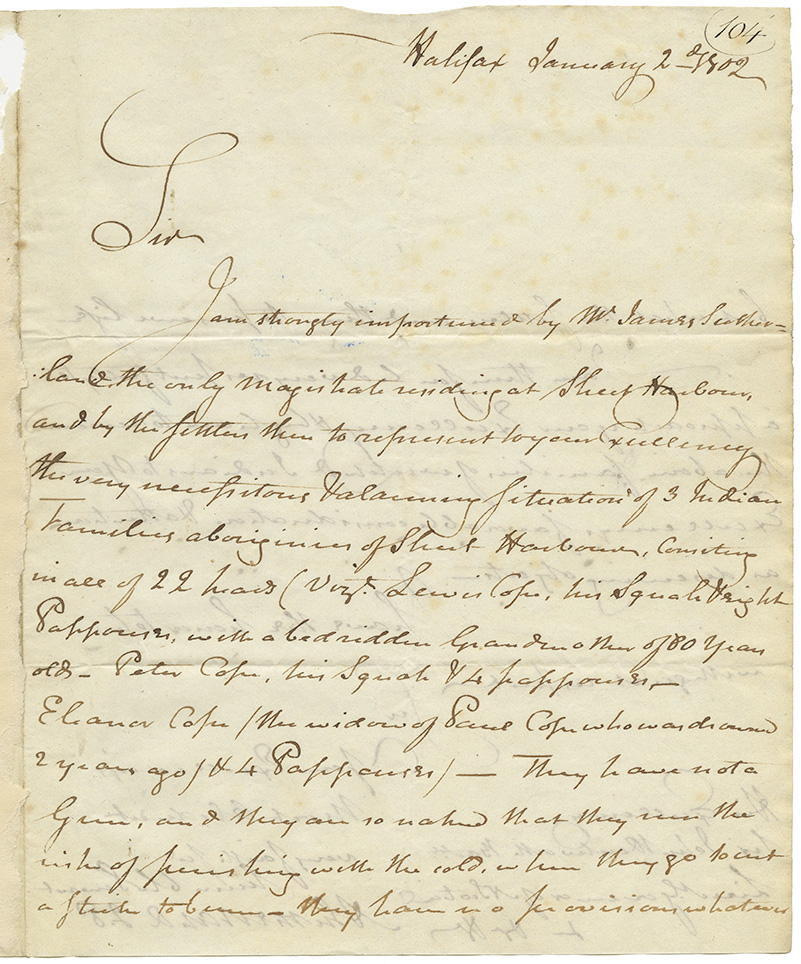 104
Halifax January 2d 1802
Sir
I am strongly importuned by Mr. James Suther=
:land, the only Magistrate residing at Sheet Harbour,
and by the settlers there to represent to your Excellency
the very necessitous & alarming situation of 3 Indian
Families aborigines of Sheet Harbour, Consisting
in all of 22 heads (Vizt. Lewis Cope, his Squah & eight
Pappouses, with a bedridden Grandmother of 80 Years
old – Peter Cope, his Squah & 4 pappouses, –
Eleanor Cope / the widow of Paul Cope who was drowned
2 years ago / & 4 Pappouses) – They have not a
Gun, and they are so naked that they run the
risk of perishing with the cold, when they go to cut
a stick to burn – they have no provisions whatever